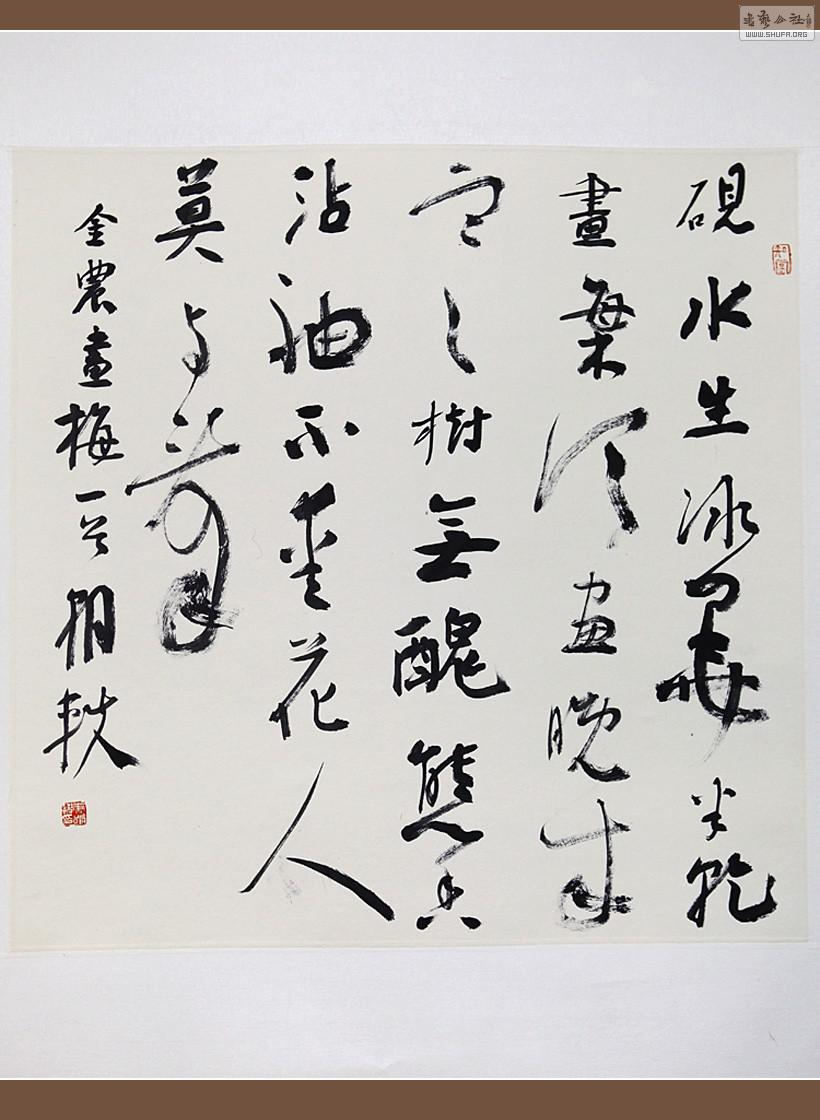 書藝公社
WWW.SHUFA.ORG
硯水生冰墨半乾
畫梅須画晚來
寒樹無醜態香
沾袖不愛花人
莫与看
金農畫梅一首 軼